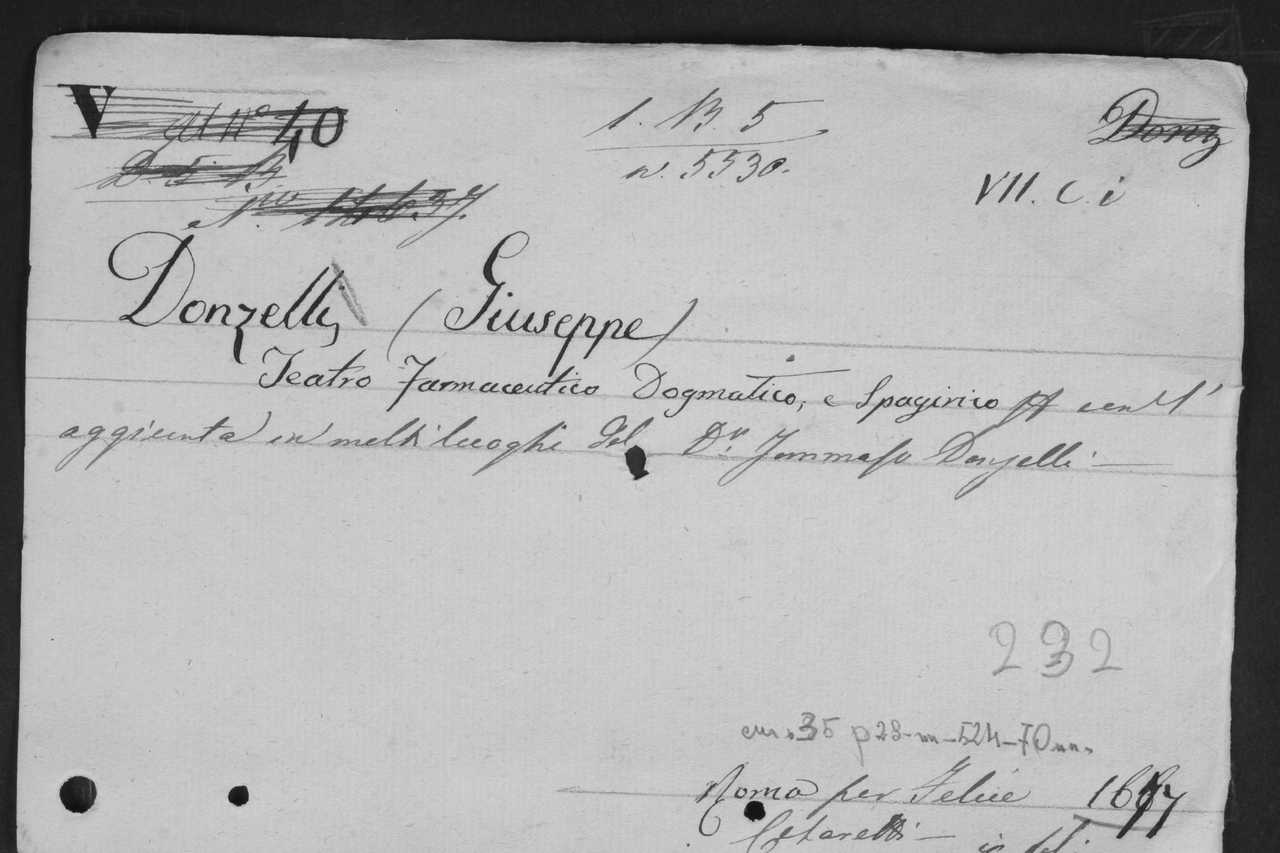 V 40
1. B. 5
n. 5530.
Donz
VII. C. i
D. 5. B
Donzelli (Giuseppe)
Teatro Farmaceutico Dogmatico, e Spagirico con l'
aggiunta in molti luoghi del Dr. Tommaso Donzelli
232
cm. 35 p 28-nn-524-70nn.
Roma per Felice 1677
Cesaretti in fol.